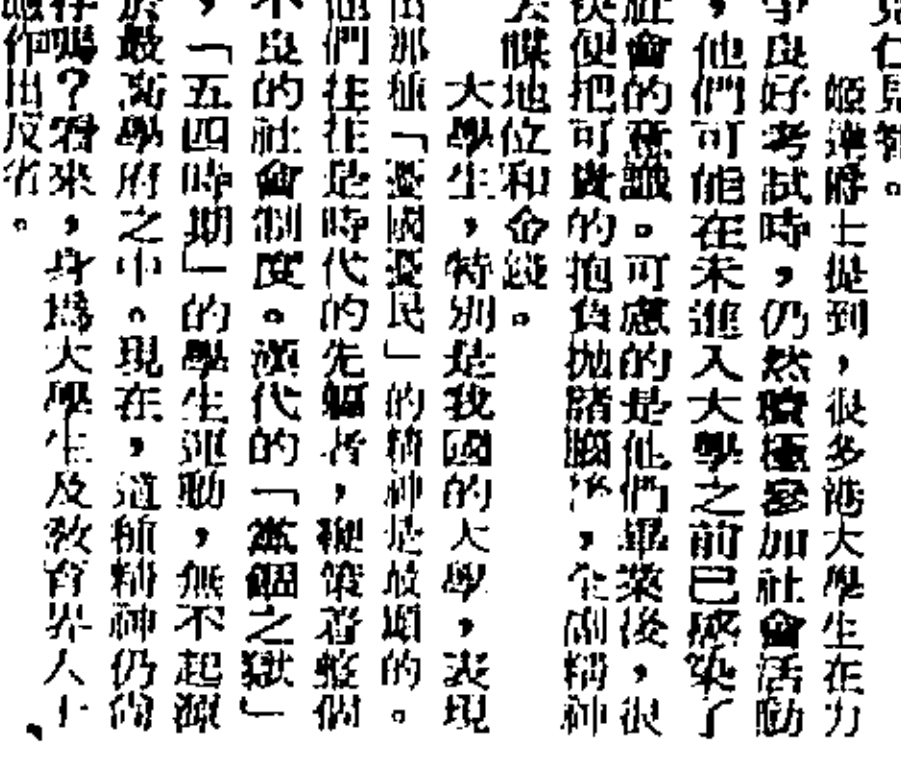 見仁見智。
爵士提到，很多港大學生在力
爭良好考試時，仍然積極參加社會活動
，他們可能在未進入大學之前已感染了
社會的意識。可慮的是他們畢業後，很
快便把可貴的抱負拋諸腦後，全副精神
去地位和金錢。
大學生，特別是我國的大學，表現
出那種「憂國憂民」的精神是最顯的。
他們往往是時代的先驅者，鞭策着整個
不良的社會制度。漢代的「黨錮之獄」
，「五四時期」的學生運動，無不起源
於最高學府之中。現在，這種精神仍尚
存嗎？看來，身爲大學生及教育界人士、
作出反省。